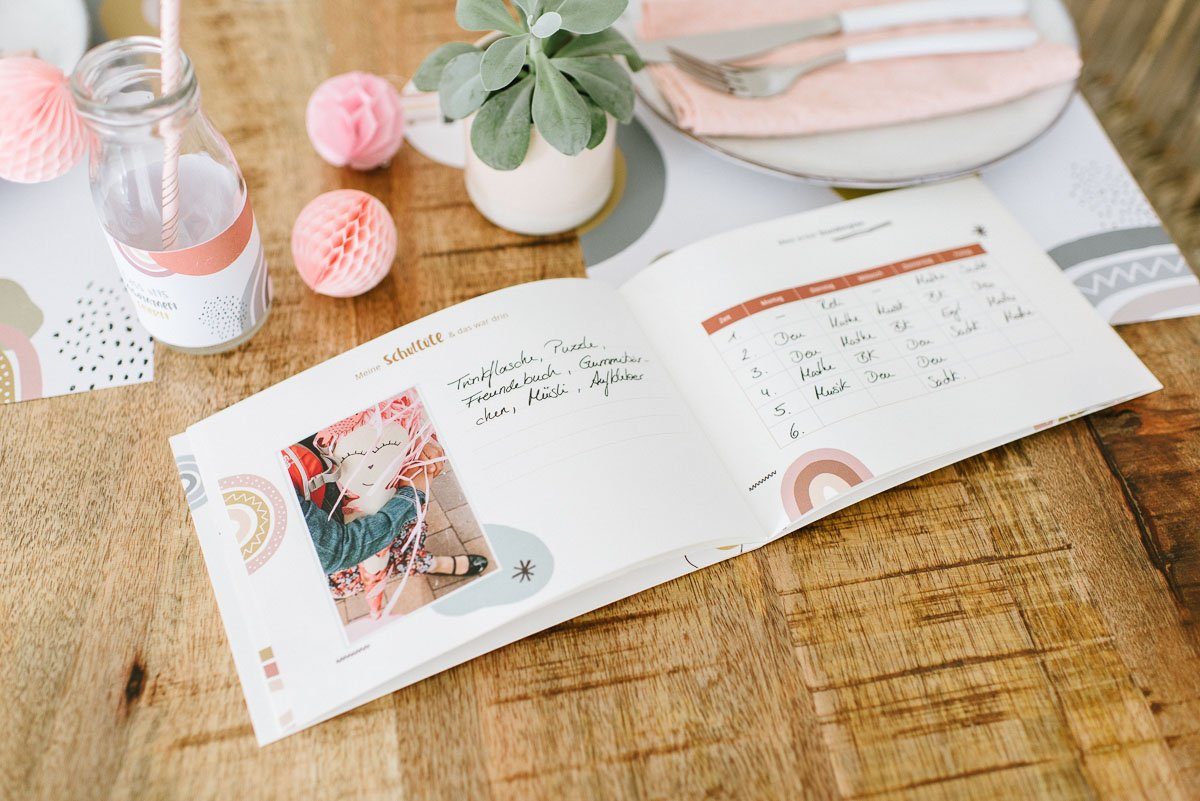 Meine Schultüte & das war drin
Trinkflasche, Puzzle,
Freundebuch, Gummibär-
chen, Müsli, Aufkleber
Mein erster Stundenplan
Zeit Montag Dienstag Mittwoch Donnerstag Freitag
1. — Rel. — Mathe Sachk.
2. Deu Mathe Musik BK Deu
3. Deu Mathe BK Mathe
4. Mathe BK Deu Sachk. Mathe
5. Musik Deu Deu
6. Sachk.